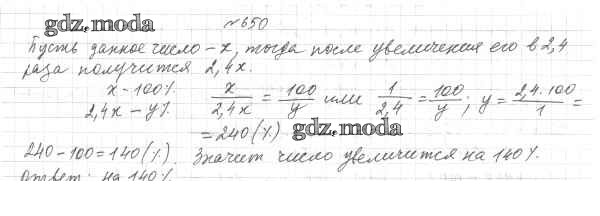 gdz.moda
№650
Пусть данное число – x, тогда после увеличения его в 2,4
раза получится 2,4x.
x – 100%
2,4x – y%
x/2,4x = 100/y или 1/2,4 = 100/y; y = 2,4·100/1 =
= 240 (%)
gdz.moda
240 – 100 = 140 (%). Значит число увеличится на 140%.
Ответ: на 140%.